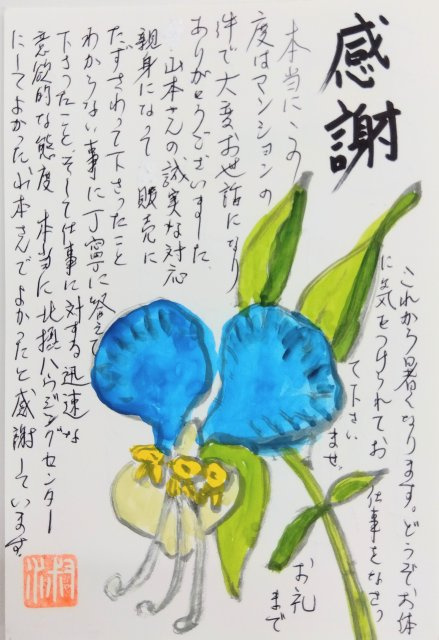 感謝
本当にこの
度はマンションの
件で大変お世話になり
ありがとうございました
山本さんの誠実な対応
親身になって販売に
たずさわって下さったこと
わからない事に丁寧に答えて
下さったこと、そして仕事に対する迅速な
意欲的な態度 本当に北摂ハウジングセンター
にしてよかった山本さんでよかったと感謝しています。
これから暑くなります。どうぞお体
に気をつけられてお仕事をなさっ
て下さいませ。
お礼まで